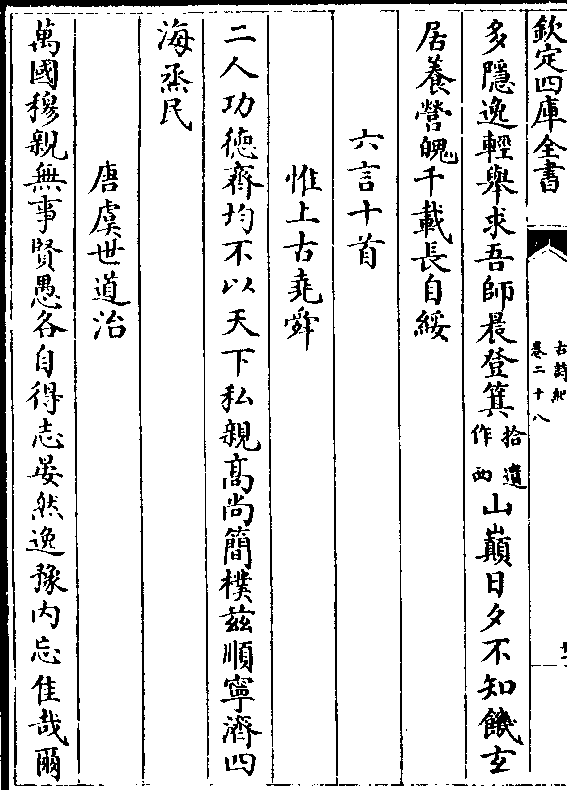 欽定四庫全書
古詩紀
卷二十八
多隱逸輕舉求吾師晨登箕拾遺作西山巔日夕不知饑玄
居養營魄千載長自綏
六言十首
惟上古堯舜
二人功德齊均不以天下私親高尚簡樸茲順寧濟四
海烝民
唐虞世道治
萬國穆親無事賢愚各自得志晏然逸豫內忘佳哉爾